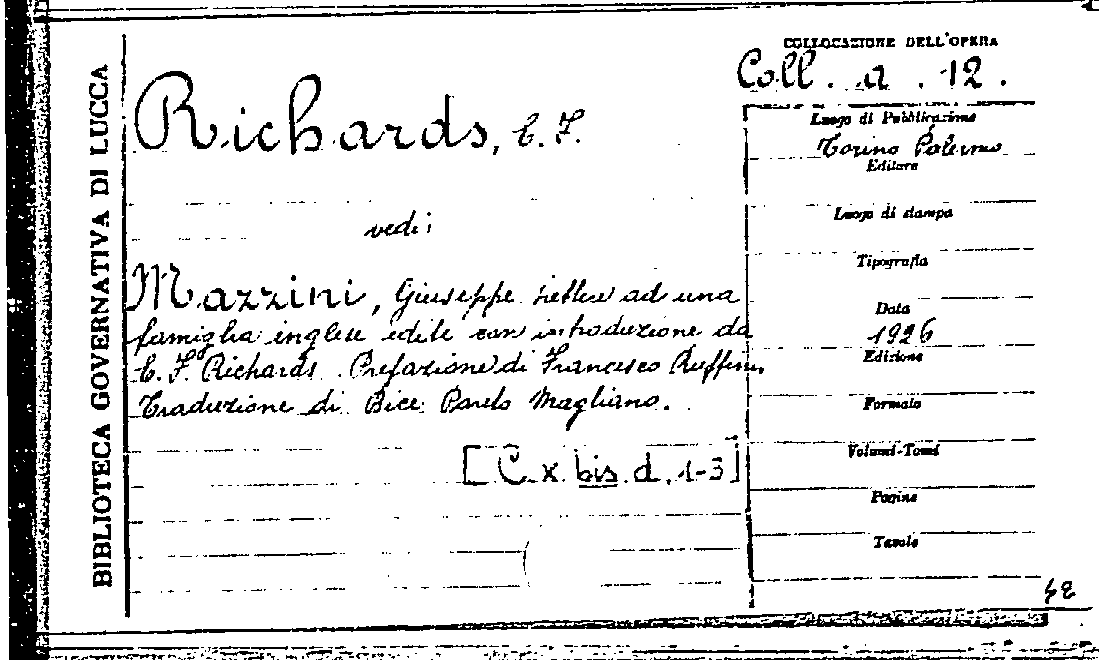 BIBLIOTECA GOVERNATIVA DI LUCCA
Richards, E. F.
vedi:
Mazzini, Giuseppe Lettere ad una
famiglia inglese edite con introduzione da
E. F. Richards. Prefazione di Francesco Ruffini,
Traduzione di Bice Pareto Magliano.
[C. x. bis d. 1-3]
COLLOCAZIONE DELL'OPERA
Coll. a. 12.
Luogo di Pubblicazione
Torino Palermo
Editore
Luogo di stampa
Tipografia
Data
1926
Edizione
Formato
Volumi-Tomi
Pagine
Tavole